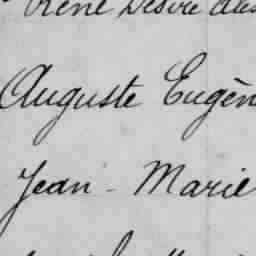 René Désiré
Auguste Eugèn
Jean-Marie